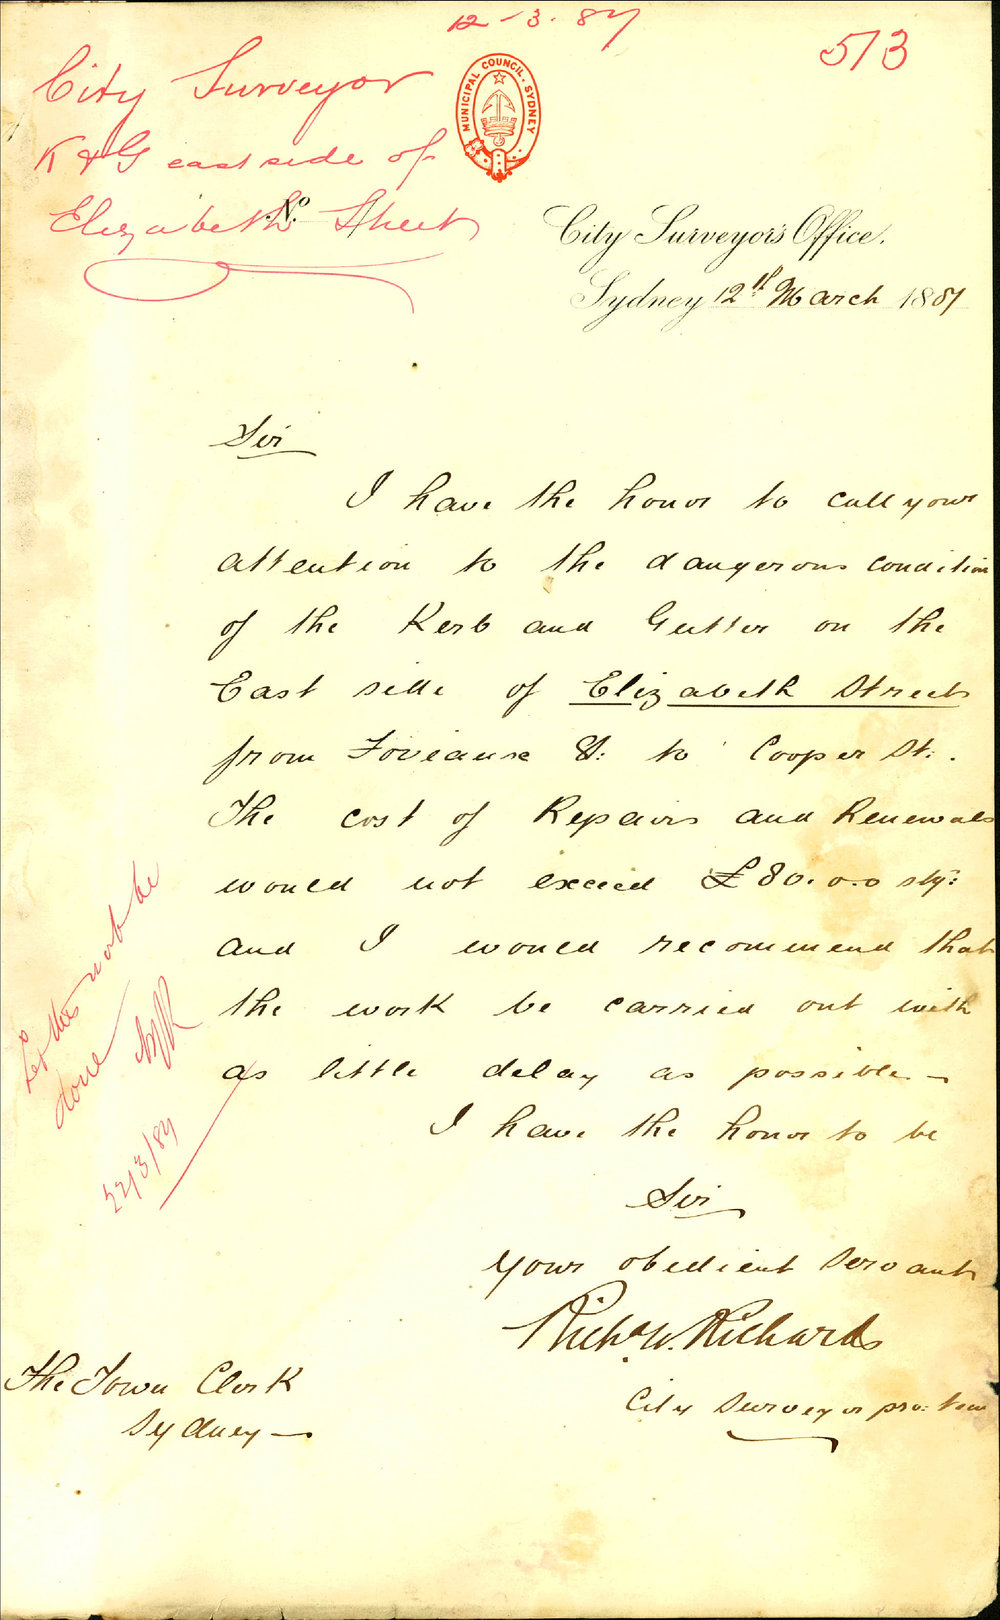 12-3.87
513
City Surveyor
K & G east side of
Elizabeth Street
MUNICIPAL COUNCIL. SYDNEY
No.
City Surveyor's Office.
Sydney 12th March 1887
Sir
I have the honor to call your
attention to the dangerous condition
of the Kerb and Gutter on the
East side of Elizabeth Street
from Foveaux St: to Cooper St:.
The cost of Repairs and Renewals
would not exceed £80.0.0 stg:
and I would recommend that
the work be carried out with
as little delay as possible —
I have the honor to be
Sir
Your obedient Servant
Richd. W. Richards
City Surveyor pro: tem
The Town Clerk
Sydney —
Let this work be
done
22/3/87